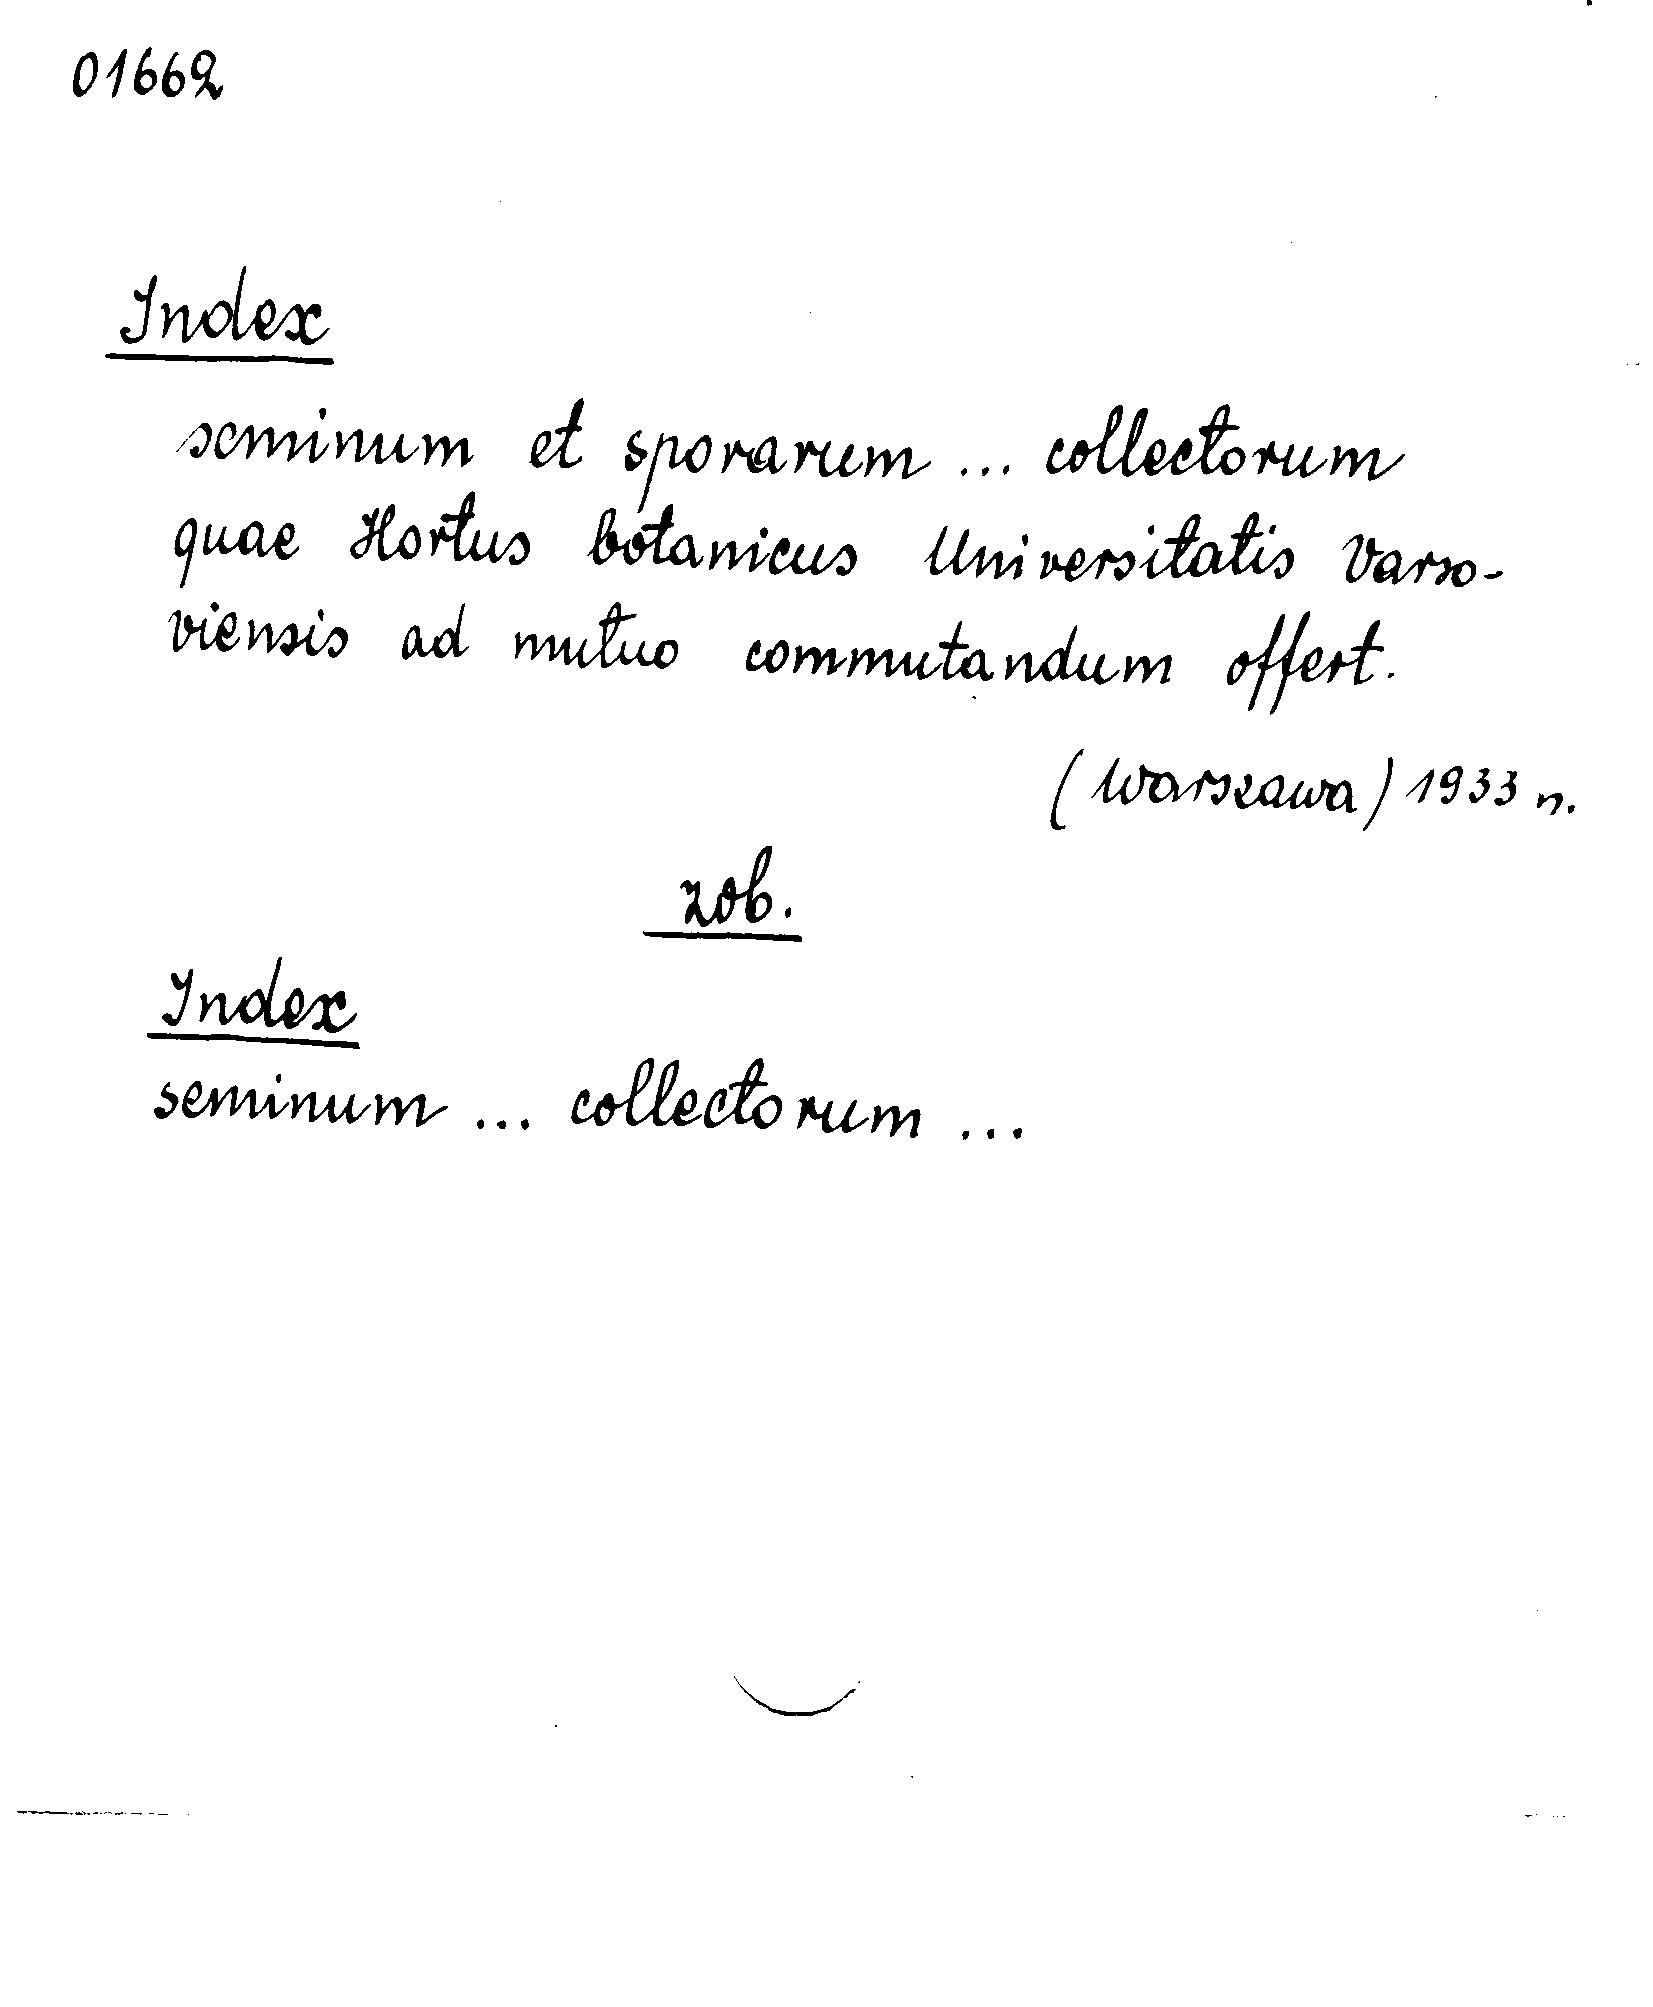 01662
Index
seminum et sporarum ... collectorum
quae Hortus botanicus Universitatis Varso-
viensis ad mutuo commutandum offert.
(Warszawa) 1933 n.
zob.
Index
seminum ... collectorum ...